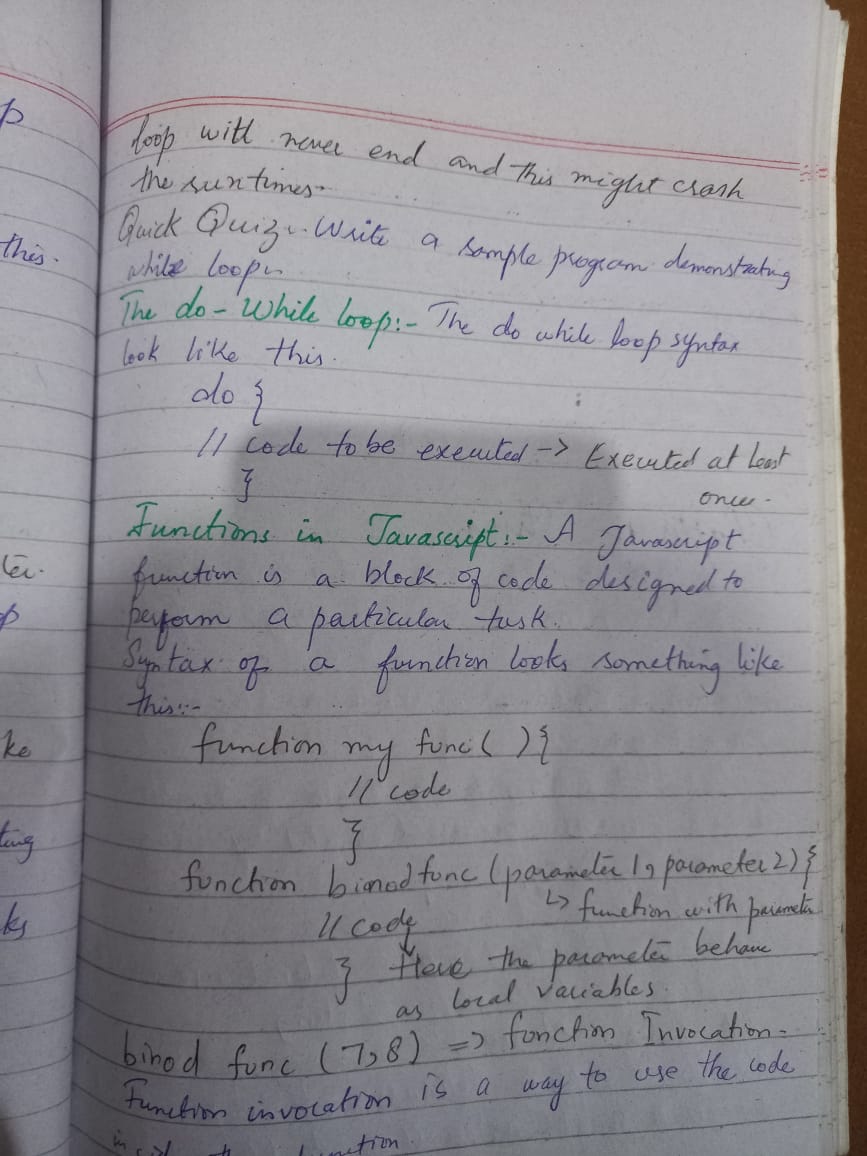 loop will never end and this might crash
the runtimes-
Quick Quiz:- Write a sample program demonstrating
while loop:-
The do-While loop:- The do while loop syntax
look like this.
do {
// code to be executed -> Executed at least
once.
}
Functions in Javascript:- A Javascript
function is a block of code designed to
perform a particular task.
Syntax of a function looks something like
this:-
function my func( ){
// code
}
function binod func (parameter 1, parameter 2) {
↳ function with parameter
// code
} Here the parameter behave
as local variables.
binod func (7,8) => function Invocation-
Function invocation is a way to use the code